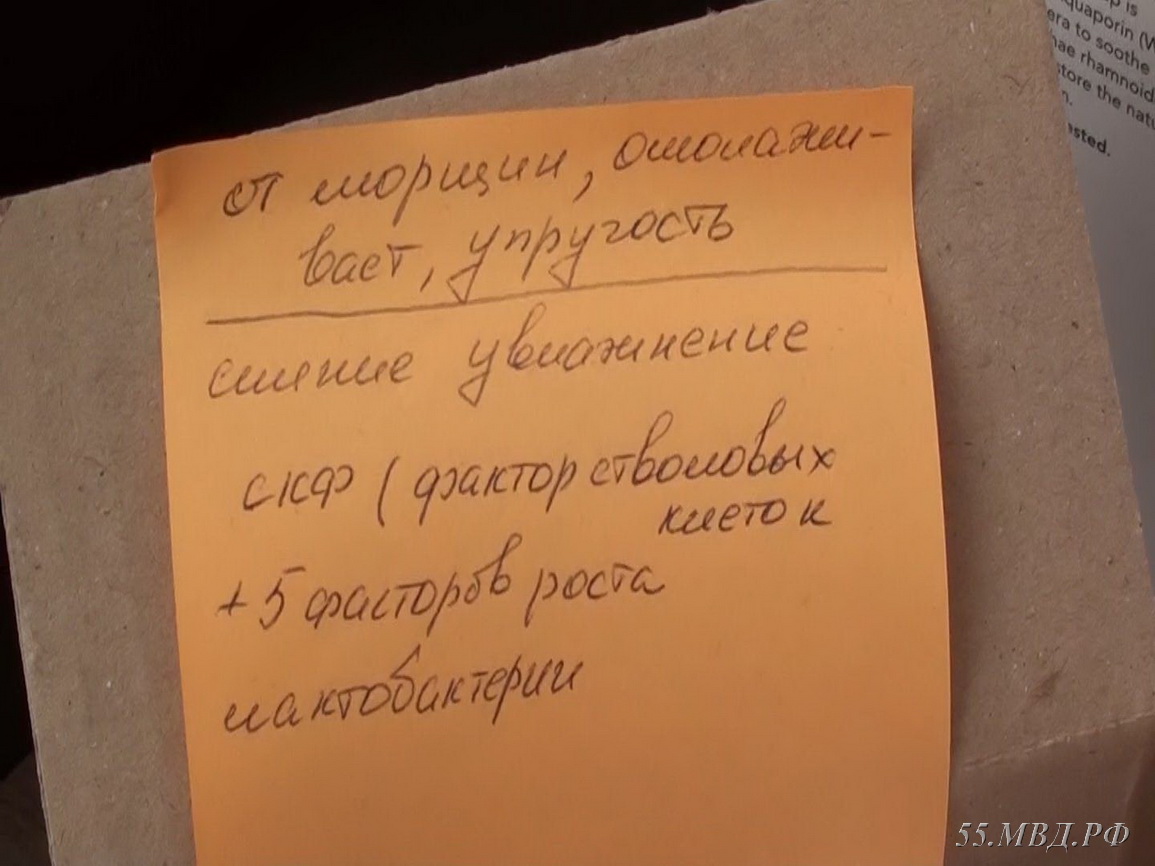 от морщин, омолажи-
вает, упругость
сияние увлажнение
СКФ (фактор стволовых
клеток
+ 5 факторов роста
лактобактерии
is
quaporin (W
era to soothe
hae rhamnoid
store the natu
n.
ested.
55.МВД.РФ